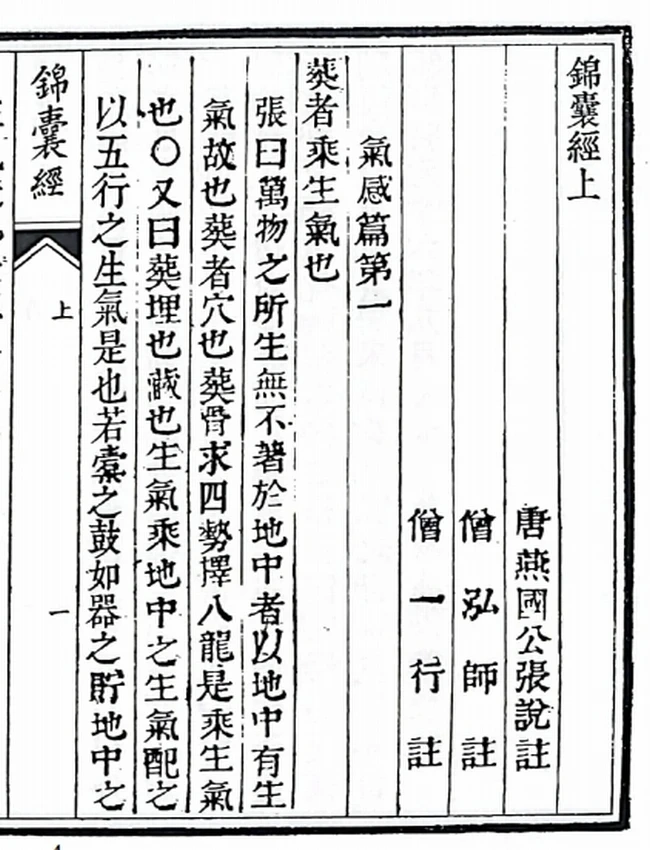 錦囊經上
唐燕國公張說註
僧泓師註
僧一行註
氣感篇第一
葬者乘生氣也
張曰萬物之所生無不著於地中者以地中有生
氣故也葬者穴也葬骨求四勢擇八龍是乘生氣
也〇又曰葬埋也藏也生氣乘地中之生氣配之
以五行之生氣是也若橐之鼓如器之貯地中之
錦囊經
上
一